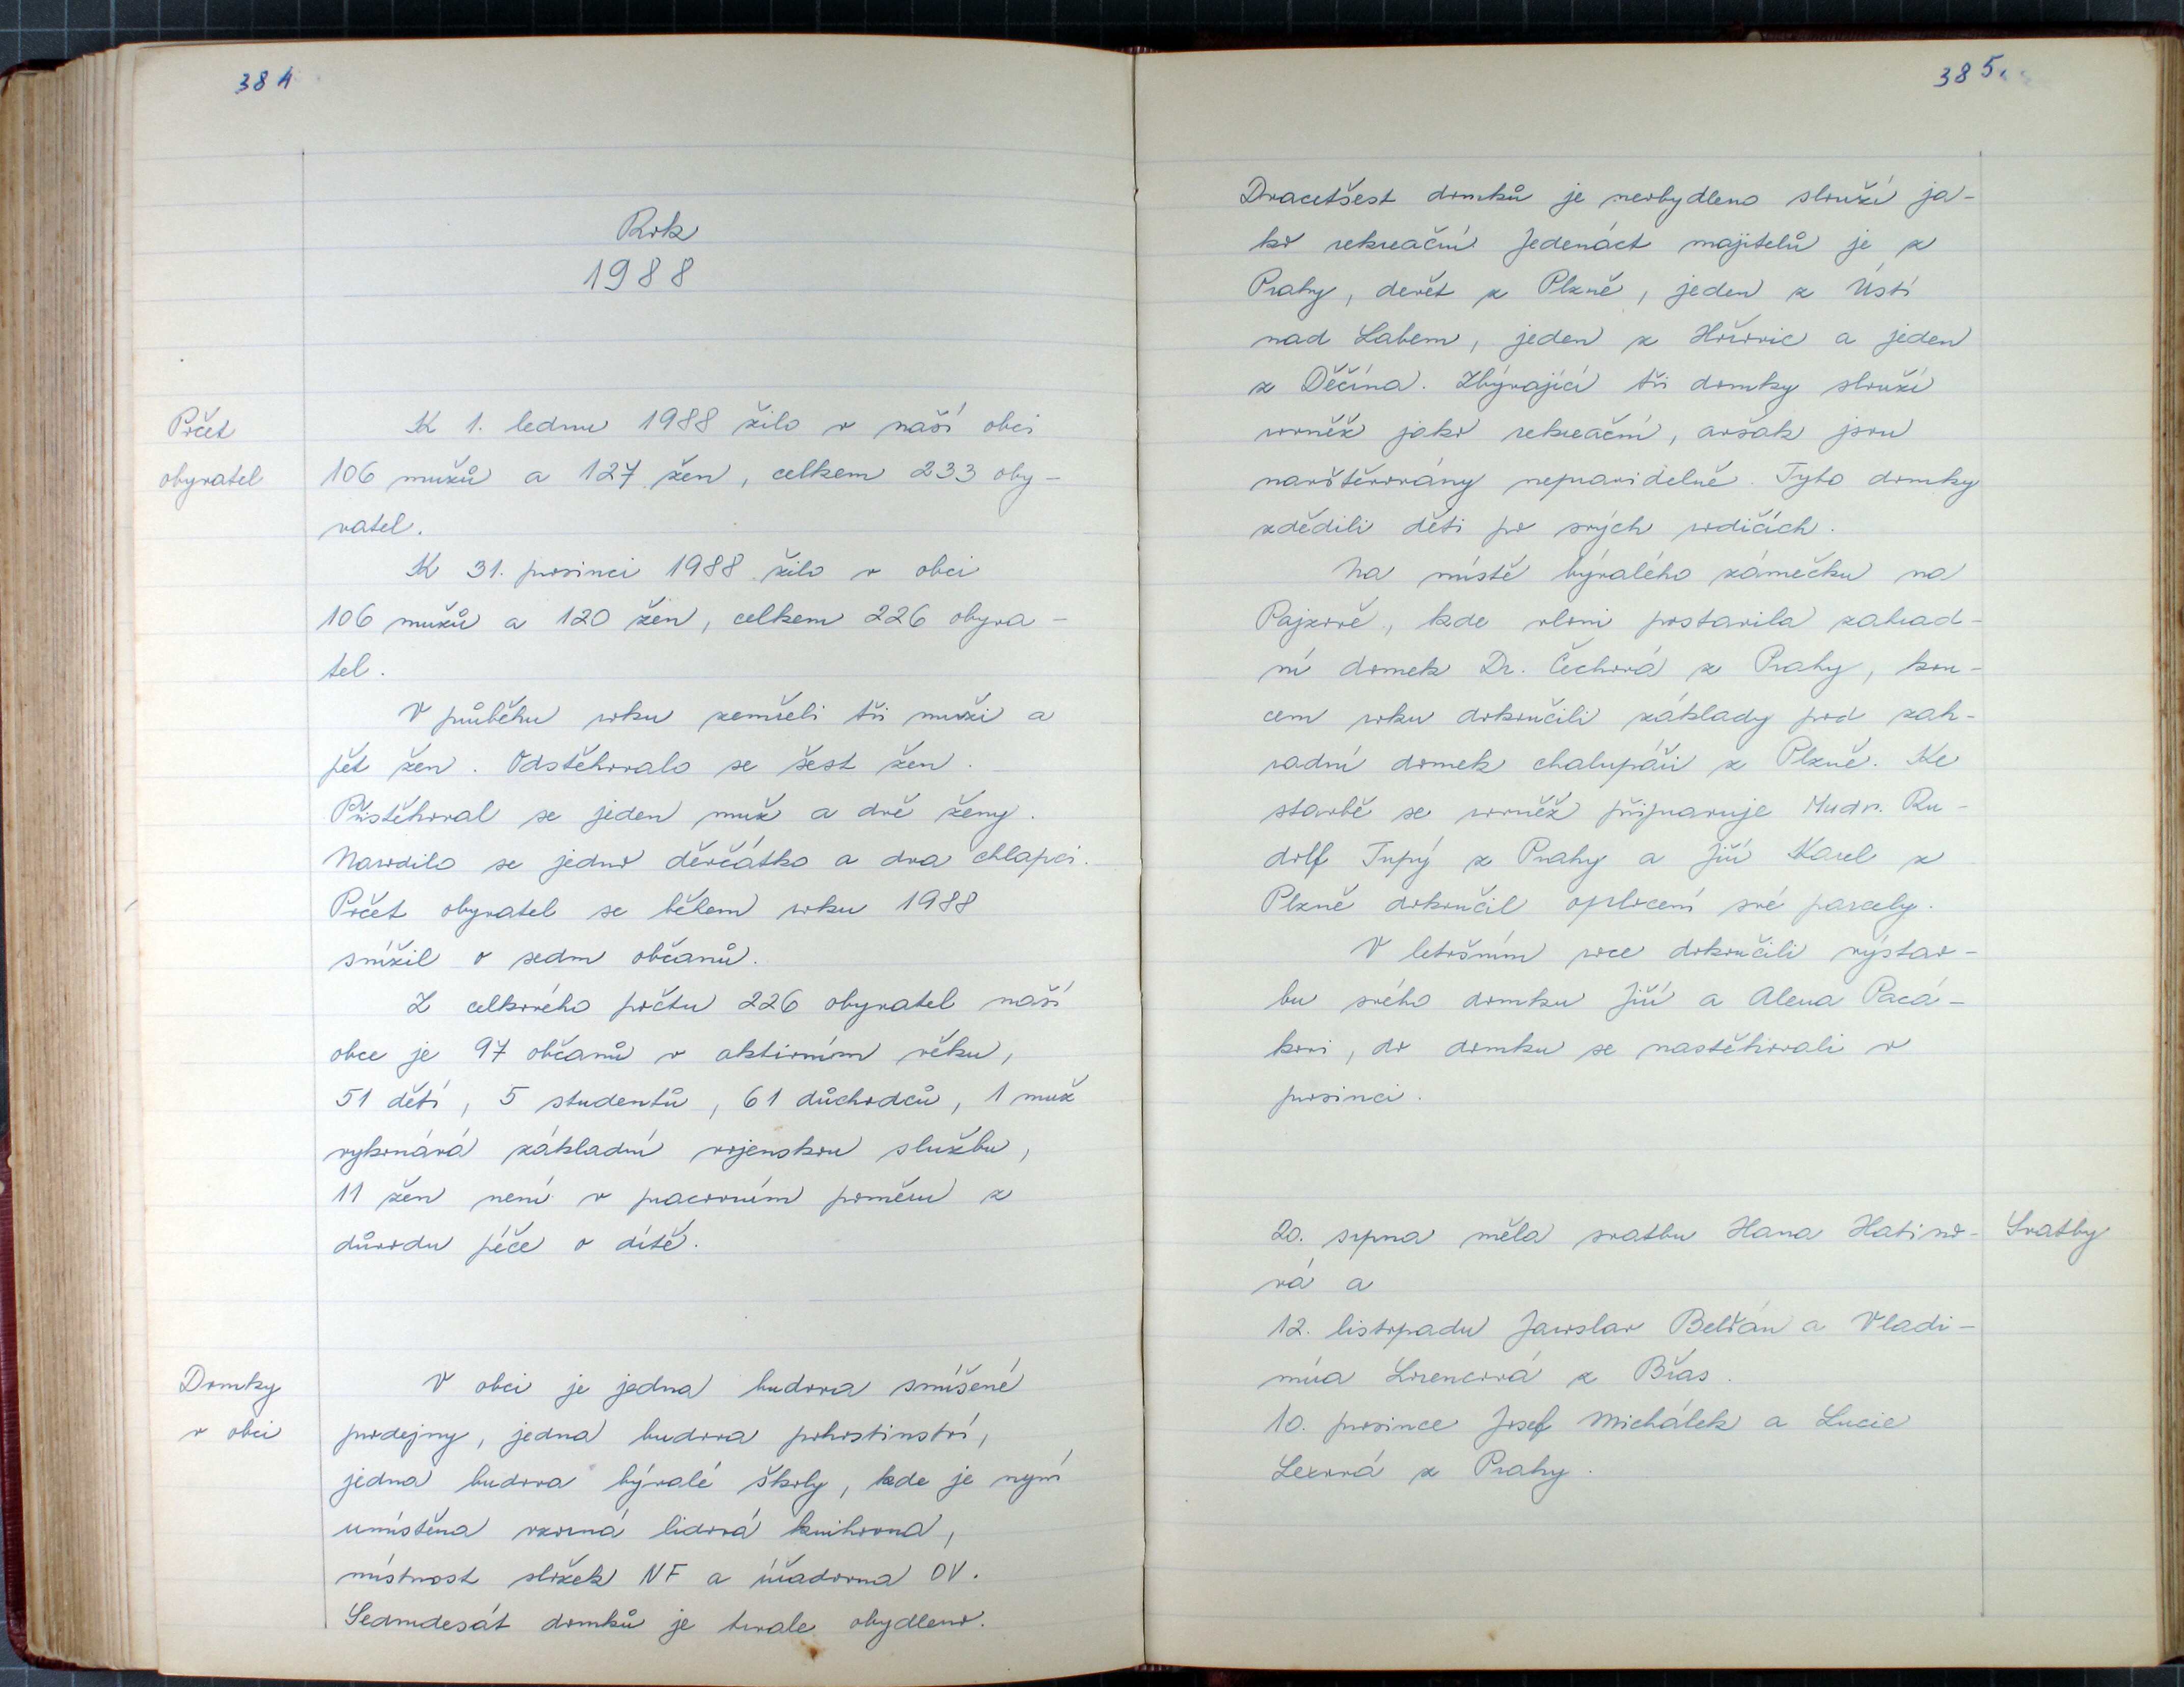 384
Rok
1988
Počet
obyvatel
K 1. lednu 1988 žilo v naší obci
106 mužů a 127 žen, celkem 233 oby-
vatel.
K 31. prosinci 1988 žilo v obci
106 mužů a 120 žen, celkem 226 obyva-
tel.
V průběhu roku zemřeli tři muži a
pět žen. Odstěhovalo se šest žen.
Přistěhoval se jeden muž a dvě ženy.
Narodilo se jedno děvčátko a dva chlapci.
Počet obyvatel se během roku 1988
snížil o sedm občanů.
Z celkového počtu 226 obyvatel naší
obce je 97 občanů v aktivním věku,
51 dětí, 5 studentů, 61 důchodců, 1 muž
vykonává základní vojenskou službu,
11 žen není v pracovním poměru z
důvodu péče o dítě.
Domky
v obci
V obci je jedna budova smíšené
prodejny, jedna budova pohostinství,
jedna budova bývalé školy, kde je nyní
umístěna vzorná lidová knihovna,
místnost složek NF a úřadovna OV.
Sedmdesát domků je trvale obydleno.
385.
Dvacetšest domků je neobydleno slouží ja-
ko rekreační. Jedenáct majitelů je z
Prahy, devět z Plzně, jeden z Ústí
nad Labem, jeden z Hořovic a jeden
z Děčína. Zbývající tři domky slouží
rovněž jako rekreační, avšak jsou
navštěvovány nepravidelně. Tyto domky
zdědili děti po svých rodičích.
Na místě bývalého zámečku na
Pajzově, kde vloni postavila zahrad-
ní domek Dr. Čechová z Prahy, kon-
cem roku dokončili základy pod zah-
radní domek chalupáři z Plzně. Ke
stavbě se rovněž připravuje Mudr. Ru-
dolf Tupý z Prahy a Jiří Karel z
Plzně dokončil oplocení své parcely.
V letošním roce dokončili výstav-
bu svého domku Jiří a Alena Pacá-
kovi, do domku se nastěhovali v
prosinci.
20. srpna měla svatbu Hana Hatino-
vá a
Svatby
12. listopadu Jaroslav Beľán a Vladi-
míra Lorencová z Břas.
10. prosince Josef Michálek a Lucie
Lexová z Prahy.